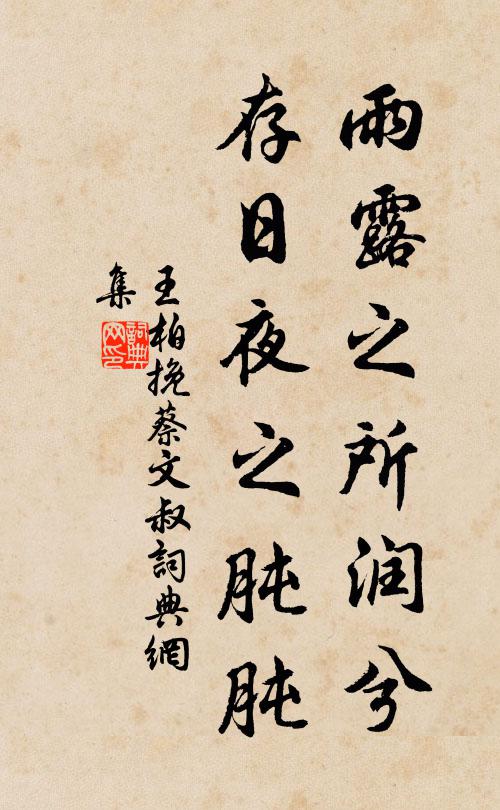 雨露之所润兮
存日夜之肫肫
王柏挽蔡文叔詞典網
集
詞典網印